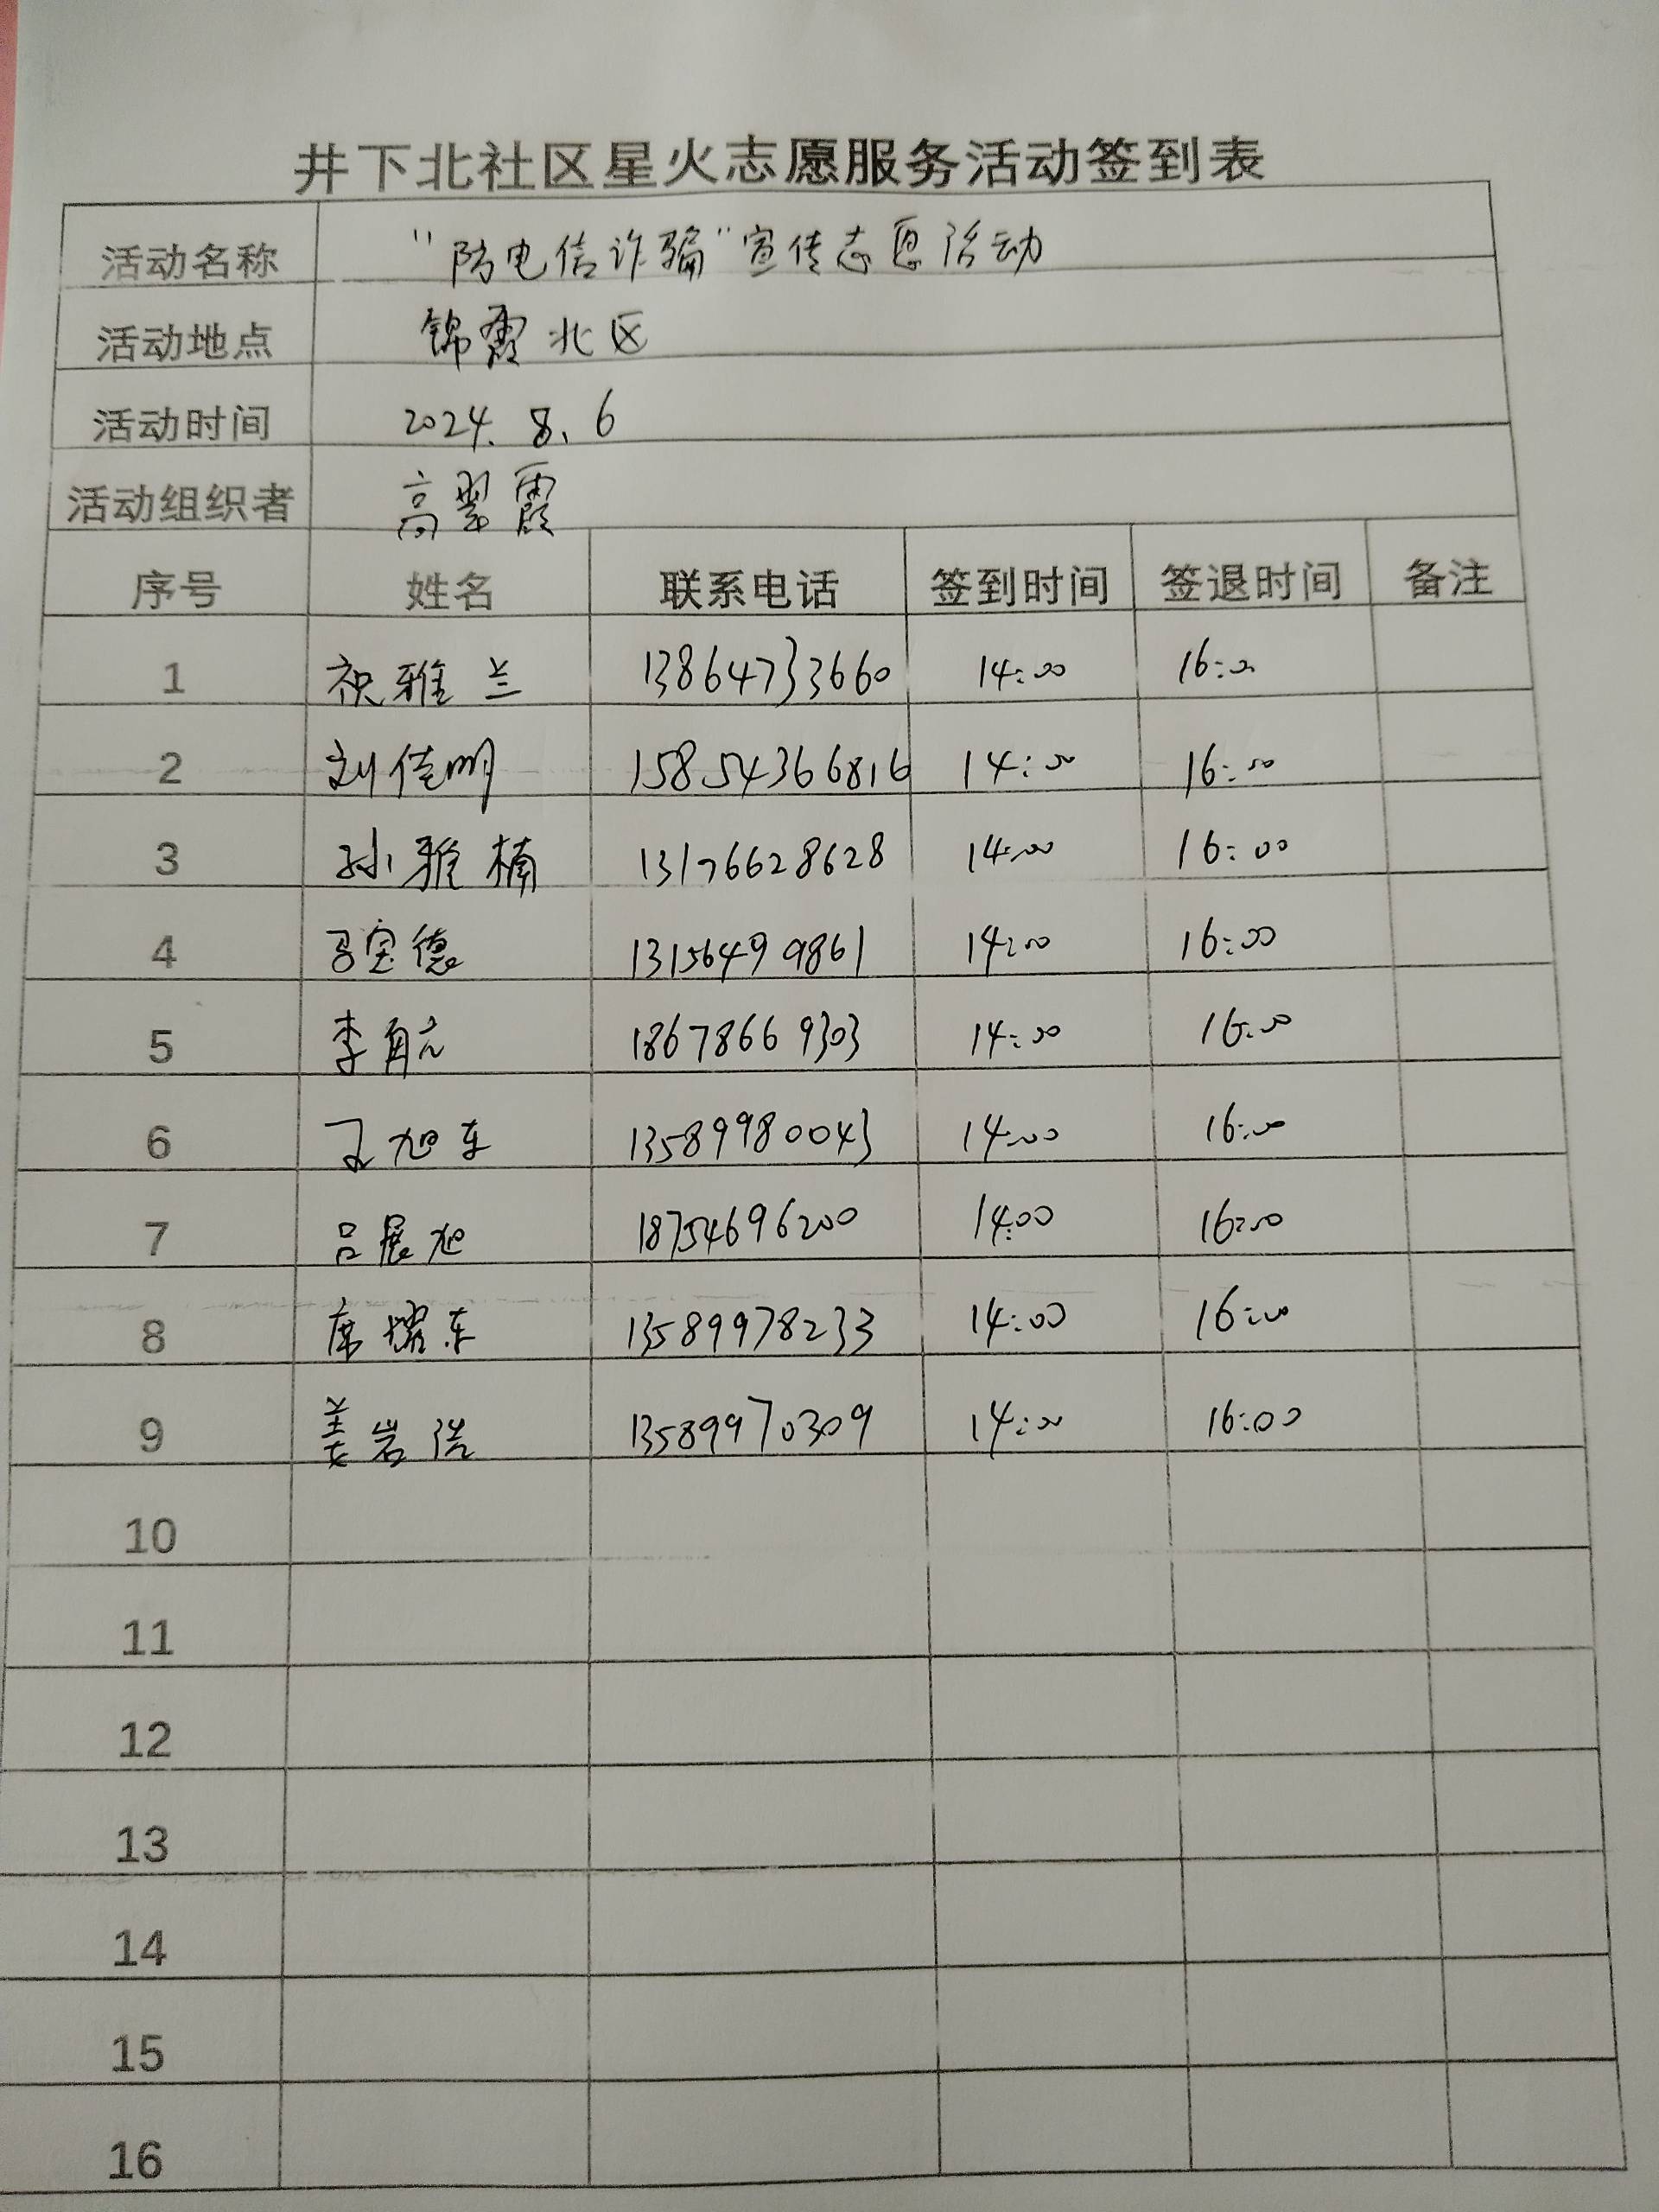 井下北社区星火志愿服务活动签到表
活动名称 "防电信诈骗"宣传志愿活动
活动地点 锦霞北区
活动时间 2024.8.6
活动组织者 高翠霞
序号 姓名 联系电话 签到时间 签退时间 备注
1 祝雅兰 13864733660 14:00 16:00
2 刘佳明 15854366816 14:00 16:00
3 孙雅楠 13176628628 14:00 16:00
4 宝德 13156499861 14:00 16:00
5 李 18678669303 14:00 16:00
6 王旭东 13589980043 14:00 16:00
7 吕展旭 18754696200 14:00 16:00
8 席耀东 13589978233 14:00 16:00
9 姜岩浩 13589970309 14:00 16:00
10
11
12
13
14
15
16